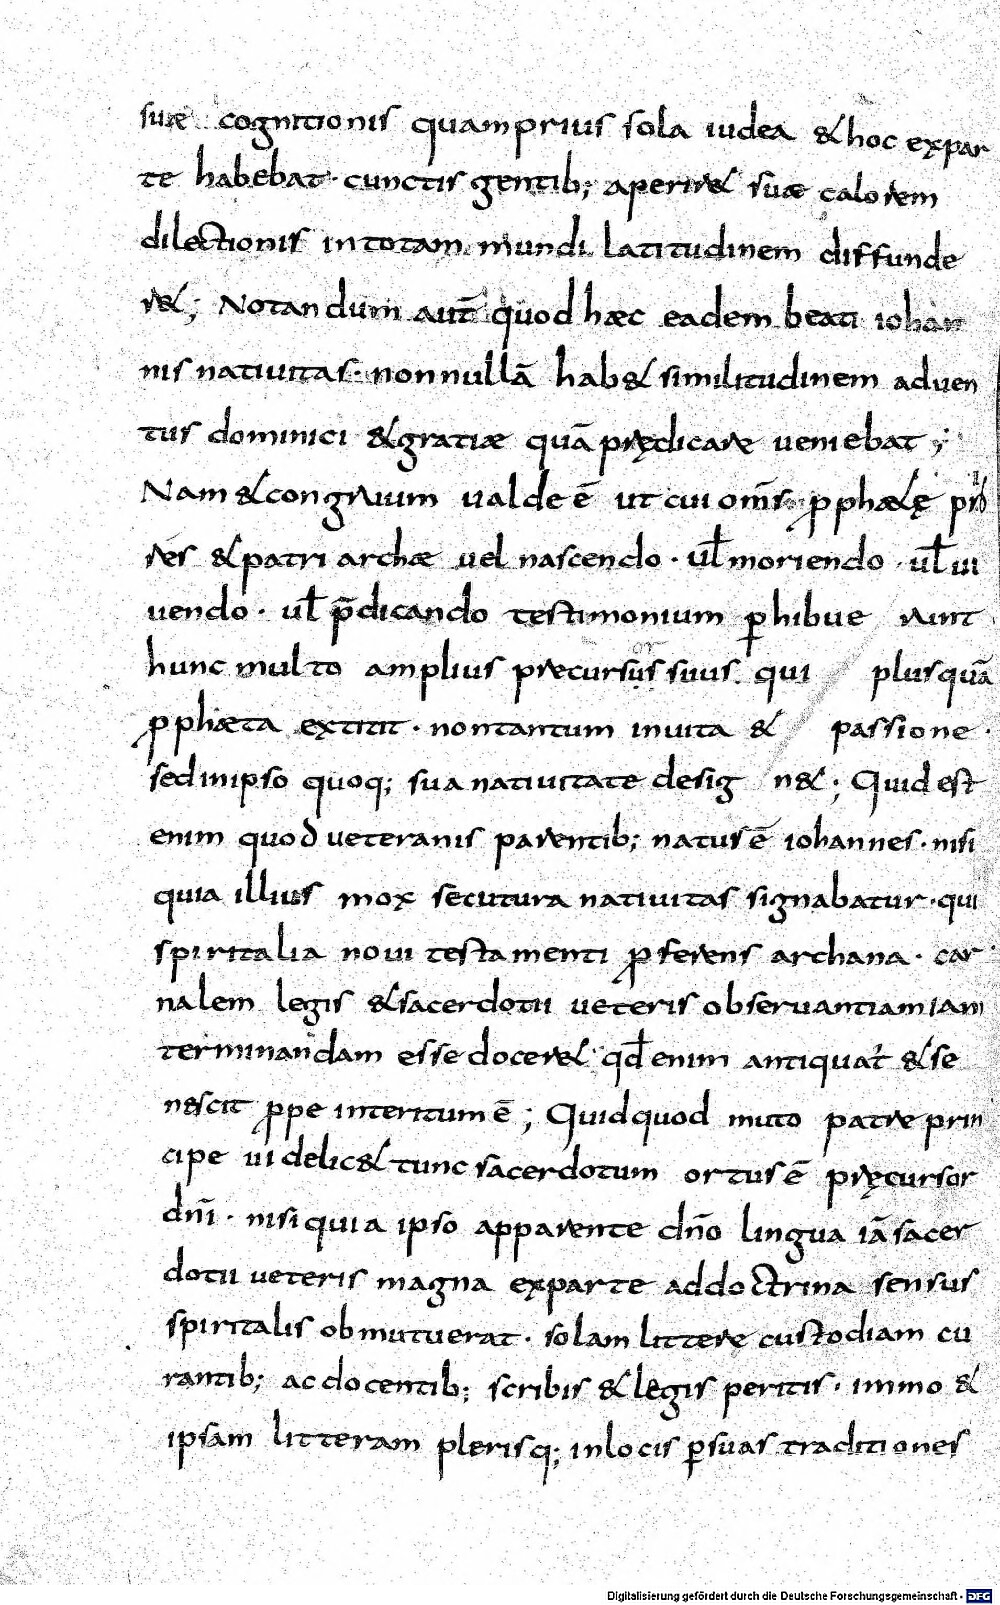 suae cognitionis quam prius sola iudea & hoc ex par
te habebat · cunctis gentib; aperir& suae calorem
dilectionis in totam mundi latitudinem diffunde
r&; Notandum aut̄ quod haec eadem beati iohan
nis nativitas · nonnullā hab& similitudinem adven
tus dominici & gratiae quā prędicare veniebat ;
Nam & congruum valde ē ut cui om̄s ꝓphaetę pri
res & patriarchae vel nascendo · ul̄ moriendo · ul̄ vi
vendo · ul̄ p̄dicando testimonium ꝑhibue runt
hunc multo amplius precursor suus qui plusquā
ꝓphaeta extitit · non tantum in vita & passione ·
sed in ipso quoq; sua nativitate desig n&; Quid est
enim quod veteranis parentib; natus ē iohannes · nisi
quia illius mox secutura nativitas signabatur · qui
spiritalia novi testamenti ꝓferens archana · car
nalem legis & sacerdotii veteris observantiam iam
terminandam esse docer& qd̄ enim antiquat̉ & se
nescit ꝓpe interitum ē ; Quid quod muto patre prin
cipe videlic& tunc sacerdotum ortus ē pręcursor
dn̄i · nisi quia ipso apparente dn̄o lingua iā sacer
dotii veteris magna ex parte ad doctrina sensus
spiritalis obmutuerat · solam littere custodiam cu
rantib; ac docentib; scribis & legis peritis · immo &
ipsam litteram plerisq; in locis ꝑ suas traditiones
Digitalisierung gefördert durch die Deutsche Forschungsgemeinschaft - DFG